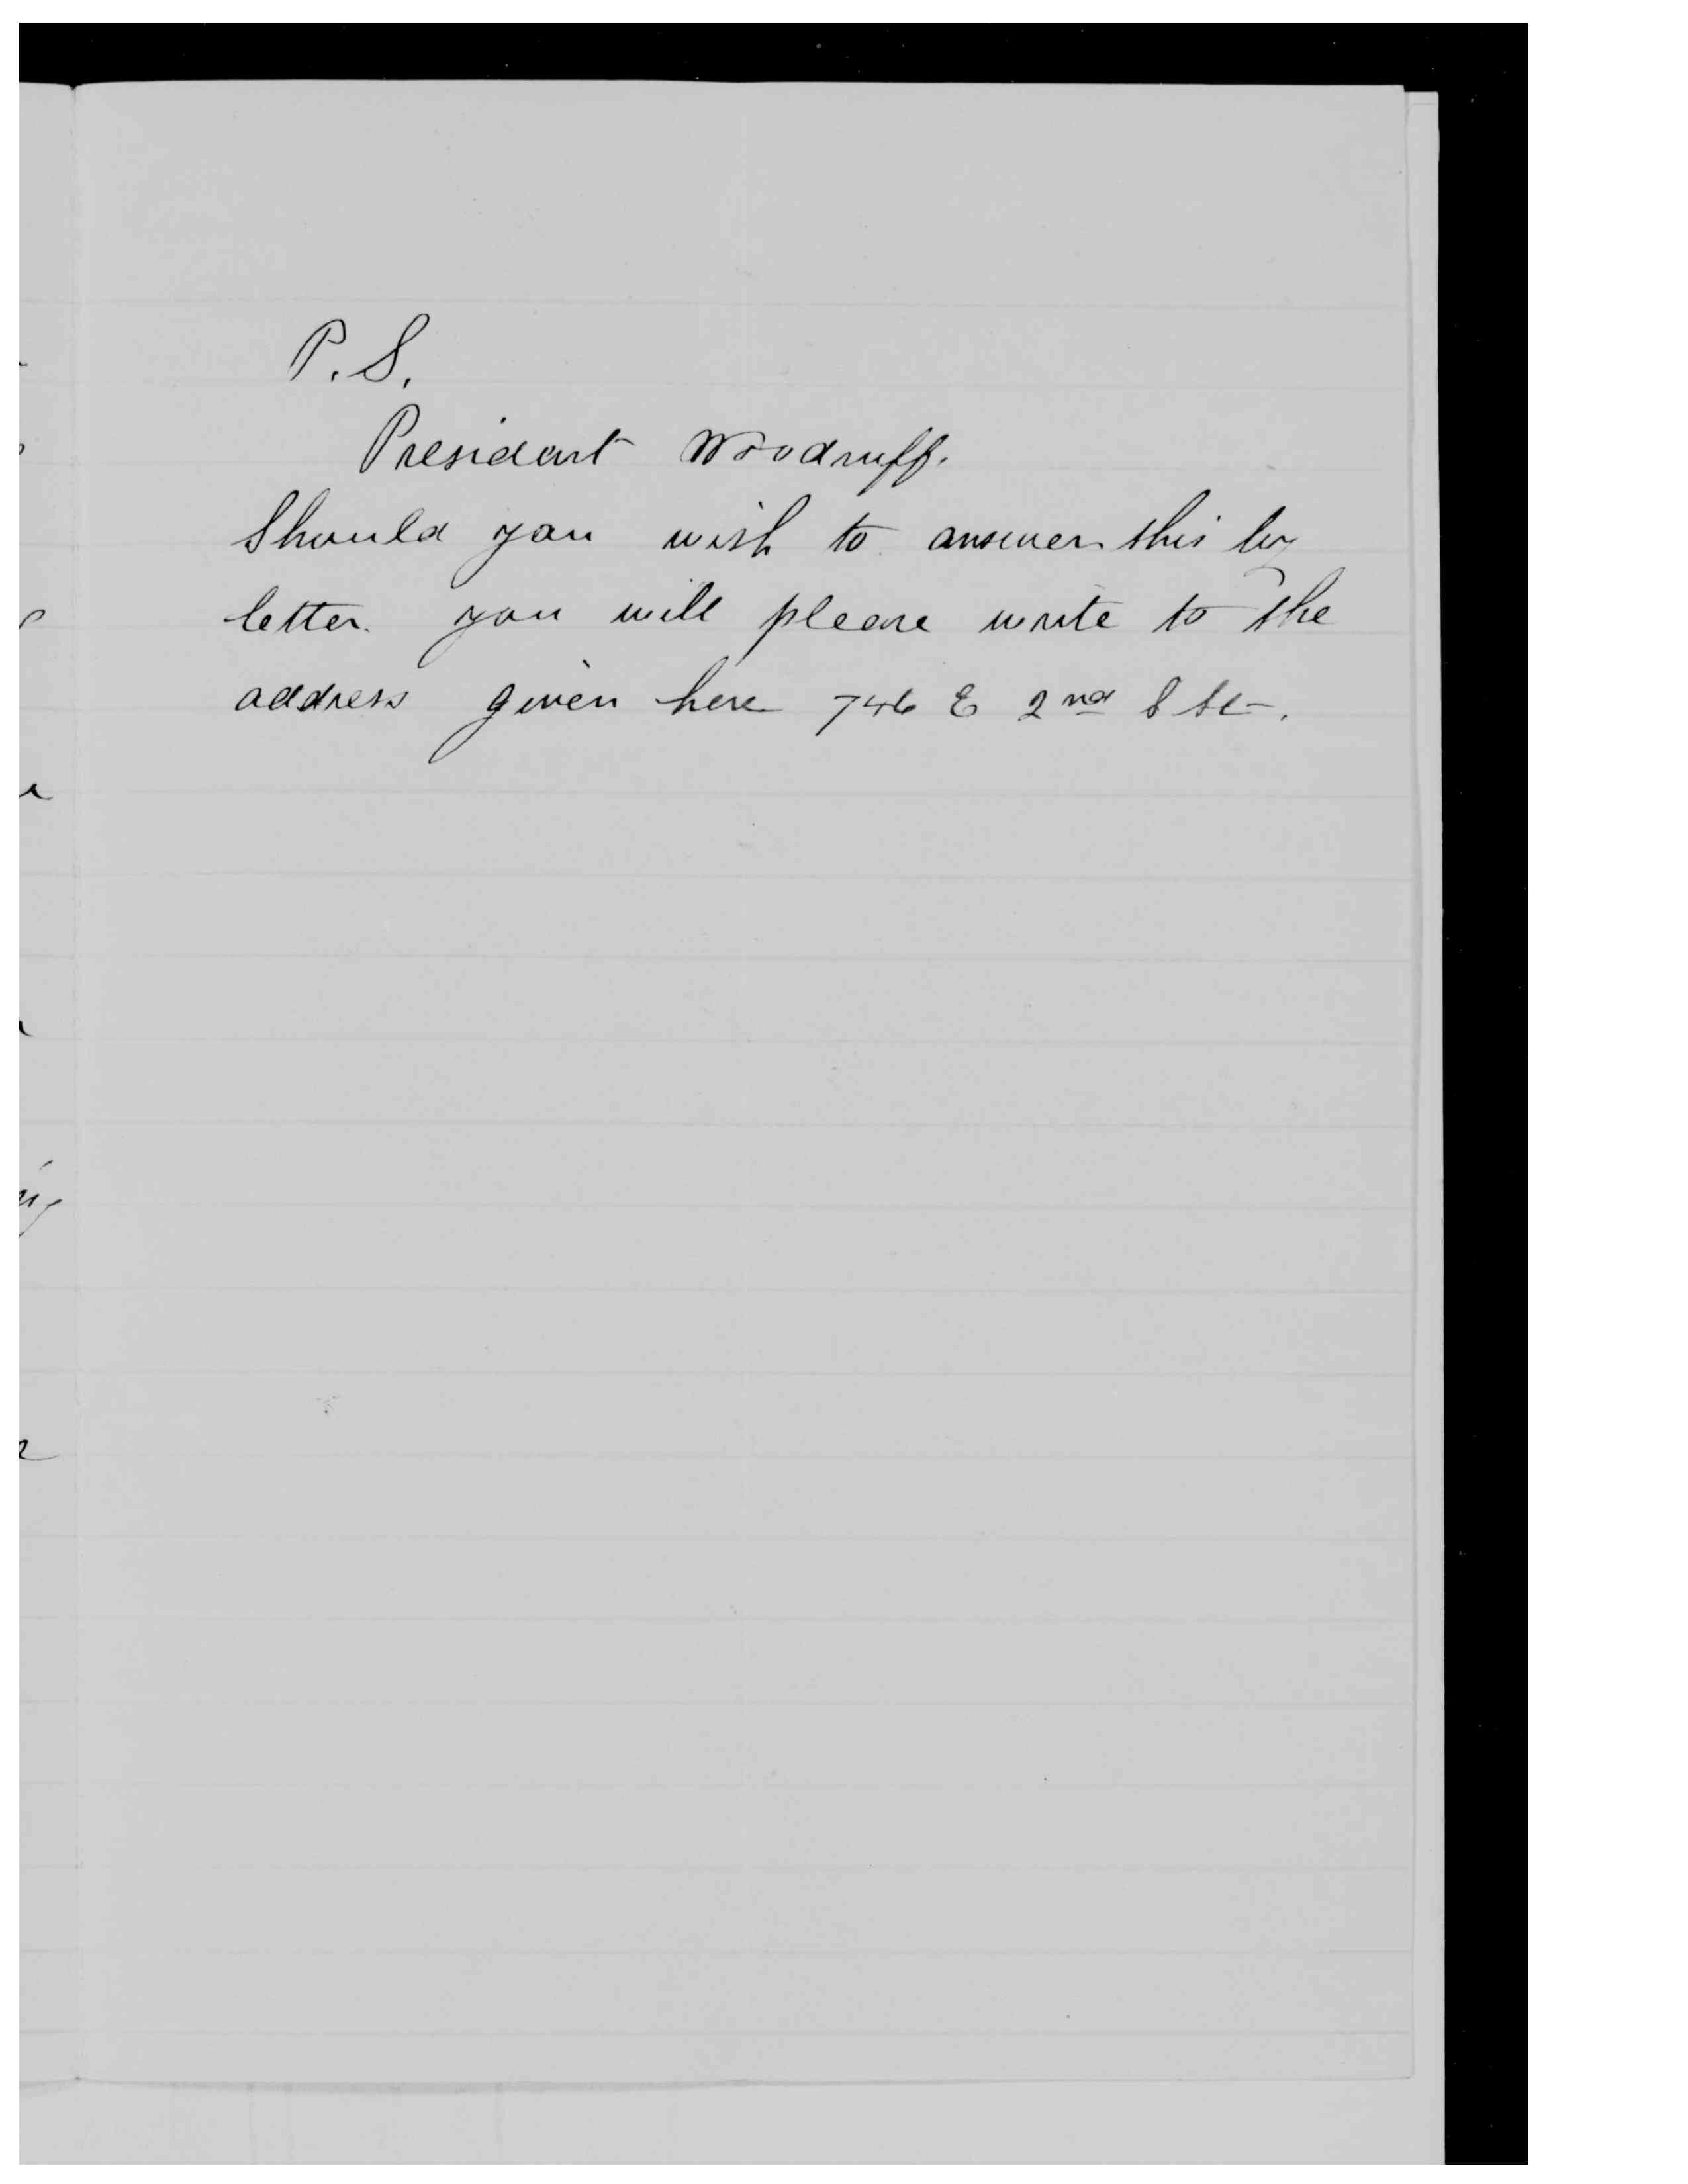 P.S.
President Woodruff.
Should you wish to answer this by
letter. you will please write to the
address given here 746 E 2nd S St.